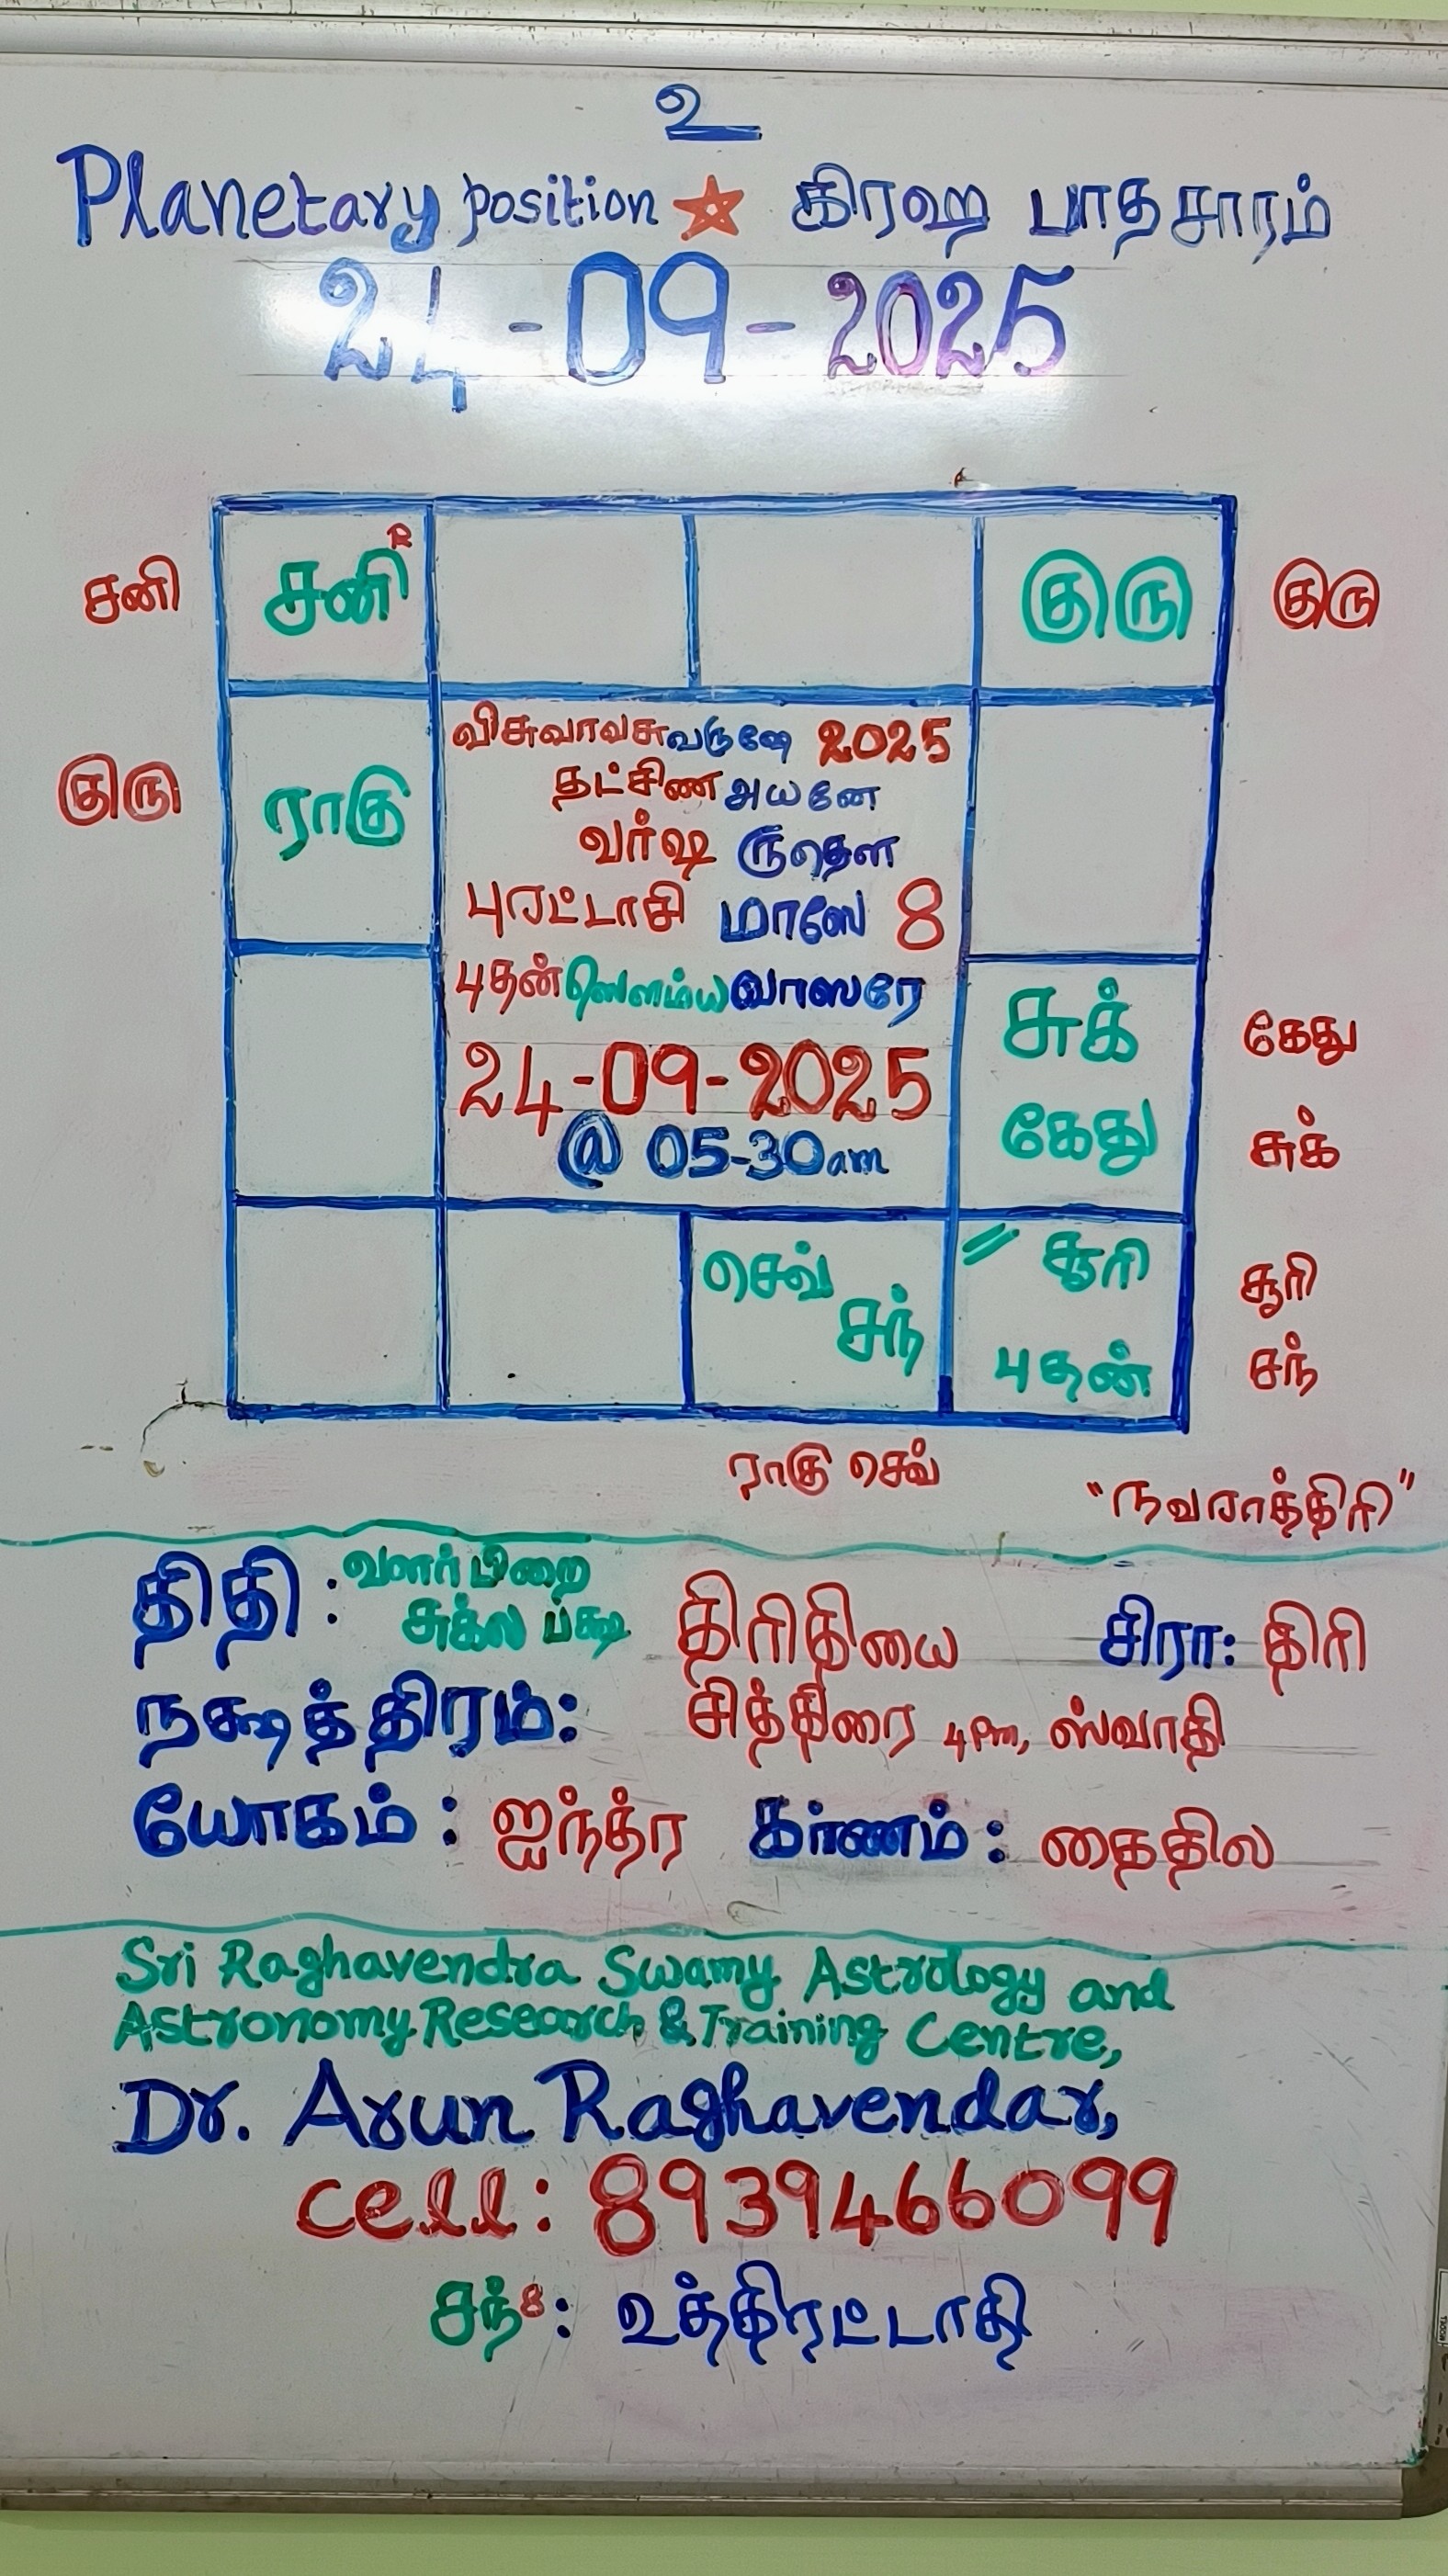 உ
Planetary position கிரஹ பாதசாரம்
24-09-2025
சனி சனி R குரு குரு
விசுவாவசுவருஷே 2025
தட்சிணஅயனே
குரு ராகு வர்ஷ ருதௌ
புரட்டாசி மாஸே 8
புதன்ஸௌம்யவாஸரே
சுக் கேது
24-09-2025
கேது சுக்
@ 05-30am
செவ் சந் சூரி சூரி
புதன் சந்
ராகு செவ் "நவராத்திரி"
திதி: வளர்பிறை
சுக்ல பக்ஷ திரிதியை சிரா: திரி
நக்ஷத்திரம்: சித்திரை 4pm, ஸ்வாதி
யோகம்: ஐந்த்ர கர்ணம்: தைதில
Sri Raghavendra Swamy Astrology and
Astronomy Research & Training Centre,
Dr. Arun Raghavendar,
cell: 8939466099
சந்8: உத்திரட்டாதி